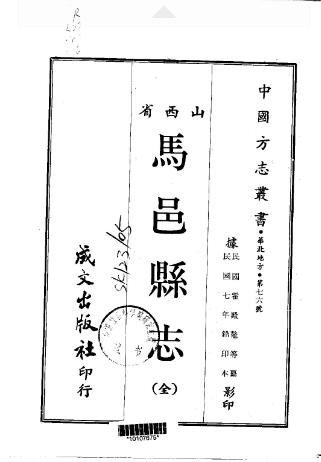 中國方志叢書·華北地方·第七六號
據民國霍殿鼇等纂
民國七年鉛印本影印
山西省
馬邑縣志
(全)
成文出版社印行
*10107675*